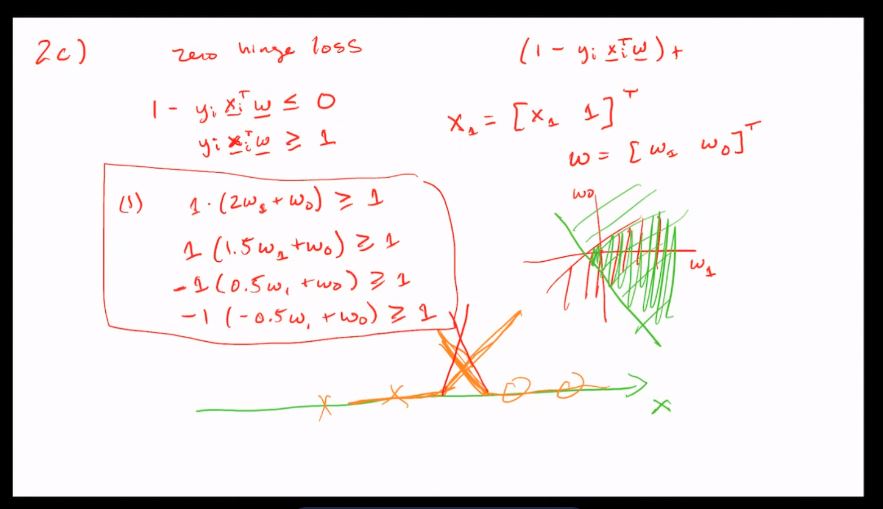 2c) zero hinge loss (1 - yᵢ xᵢᵀw)+
1 - yᵢ xᵢᵀ w ≤ 0
yᵢ xᵢᵀw ≥ 1
x₁ = [x₁ 1]ᵀ
w = [w₁ w₀]ᵀ
(1) 1·(2w₁+w₀) ≥ 1
1 (1.5w₁+w₀) ≥ 1
-1(0.5w₁+w₀) ≥ 1
-1 (-0.5w₁+w₀) ≥ 1
w₀
w₁
x